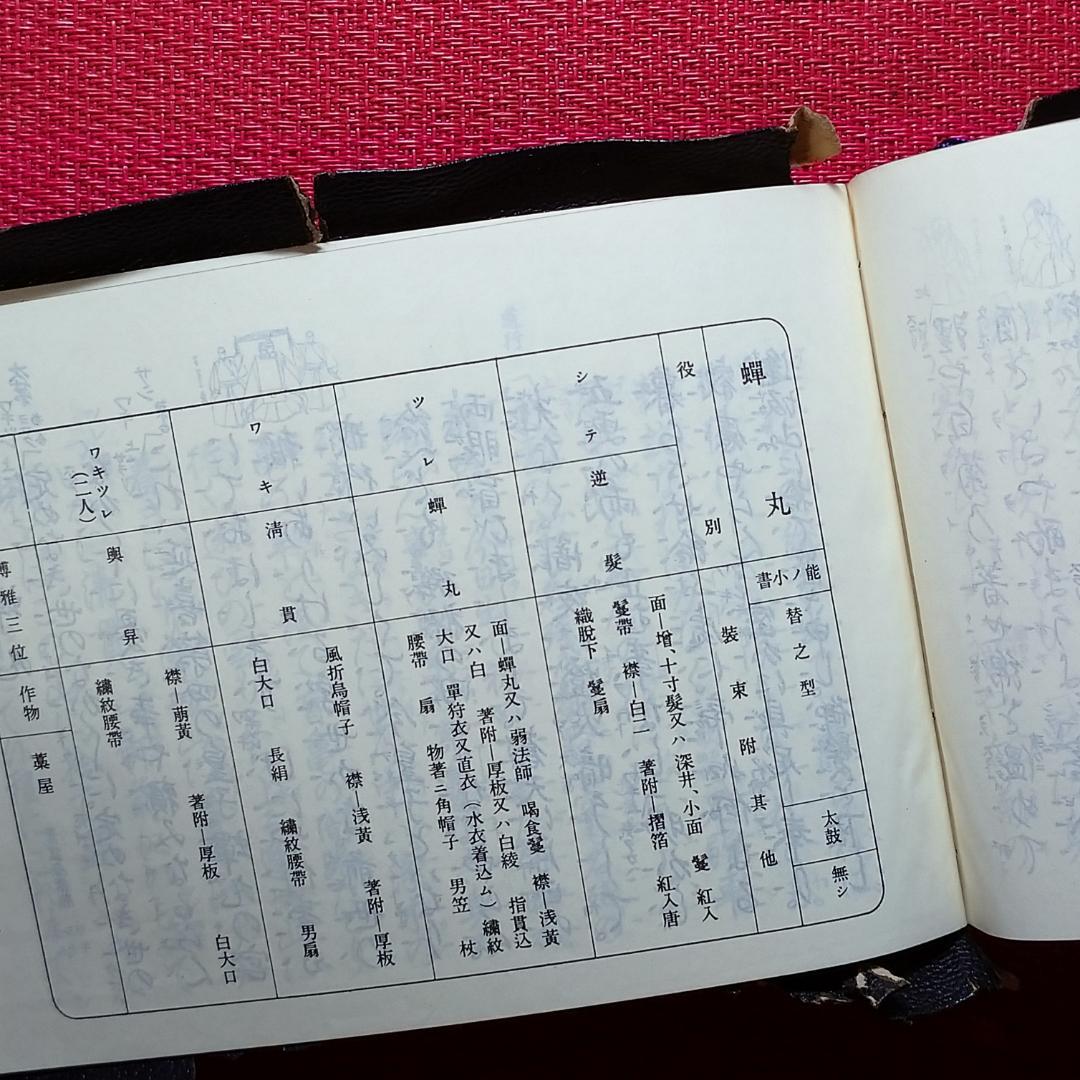 蟬丸
能ノ小書
替之型
太鼓
無シ
役別
裝束附其他
シテ
逆髮
面—增、十寸髮又ハ深井、小面 鬘 紅入
鬘帶 襟—白二 著附—摺箔 紅入唐
織脫下 鬘扇
ツレ
蟬丸
面—蟬丸又ハ弱法師 喝食鬘 襟—浅黃
又ハ白 著附—厚板又ハ白綾 指貫込
大口 單狩衣又直衣(水衣着込ム) 繡紋
腰帶 扇 物著ニ角帽子 男笠 杖
ワキ
淸貫
風折烏帽子 襟—浅黃 著附—厚板
白大口 長絹 繡紋腰帶 男扇
ワキツレ
(二人)
輿舁
襟—萠黃 著附—厚板 白大口
繡紋腰帶
雅三位
作物
藁屋